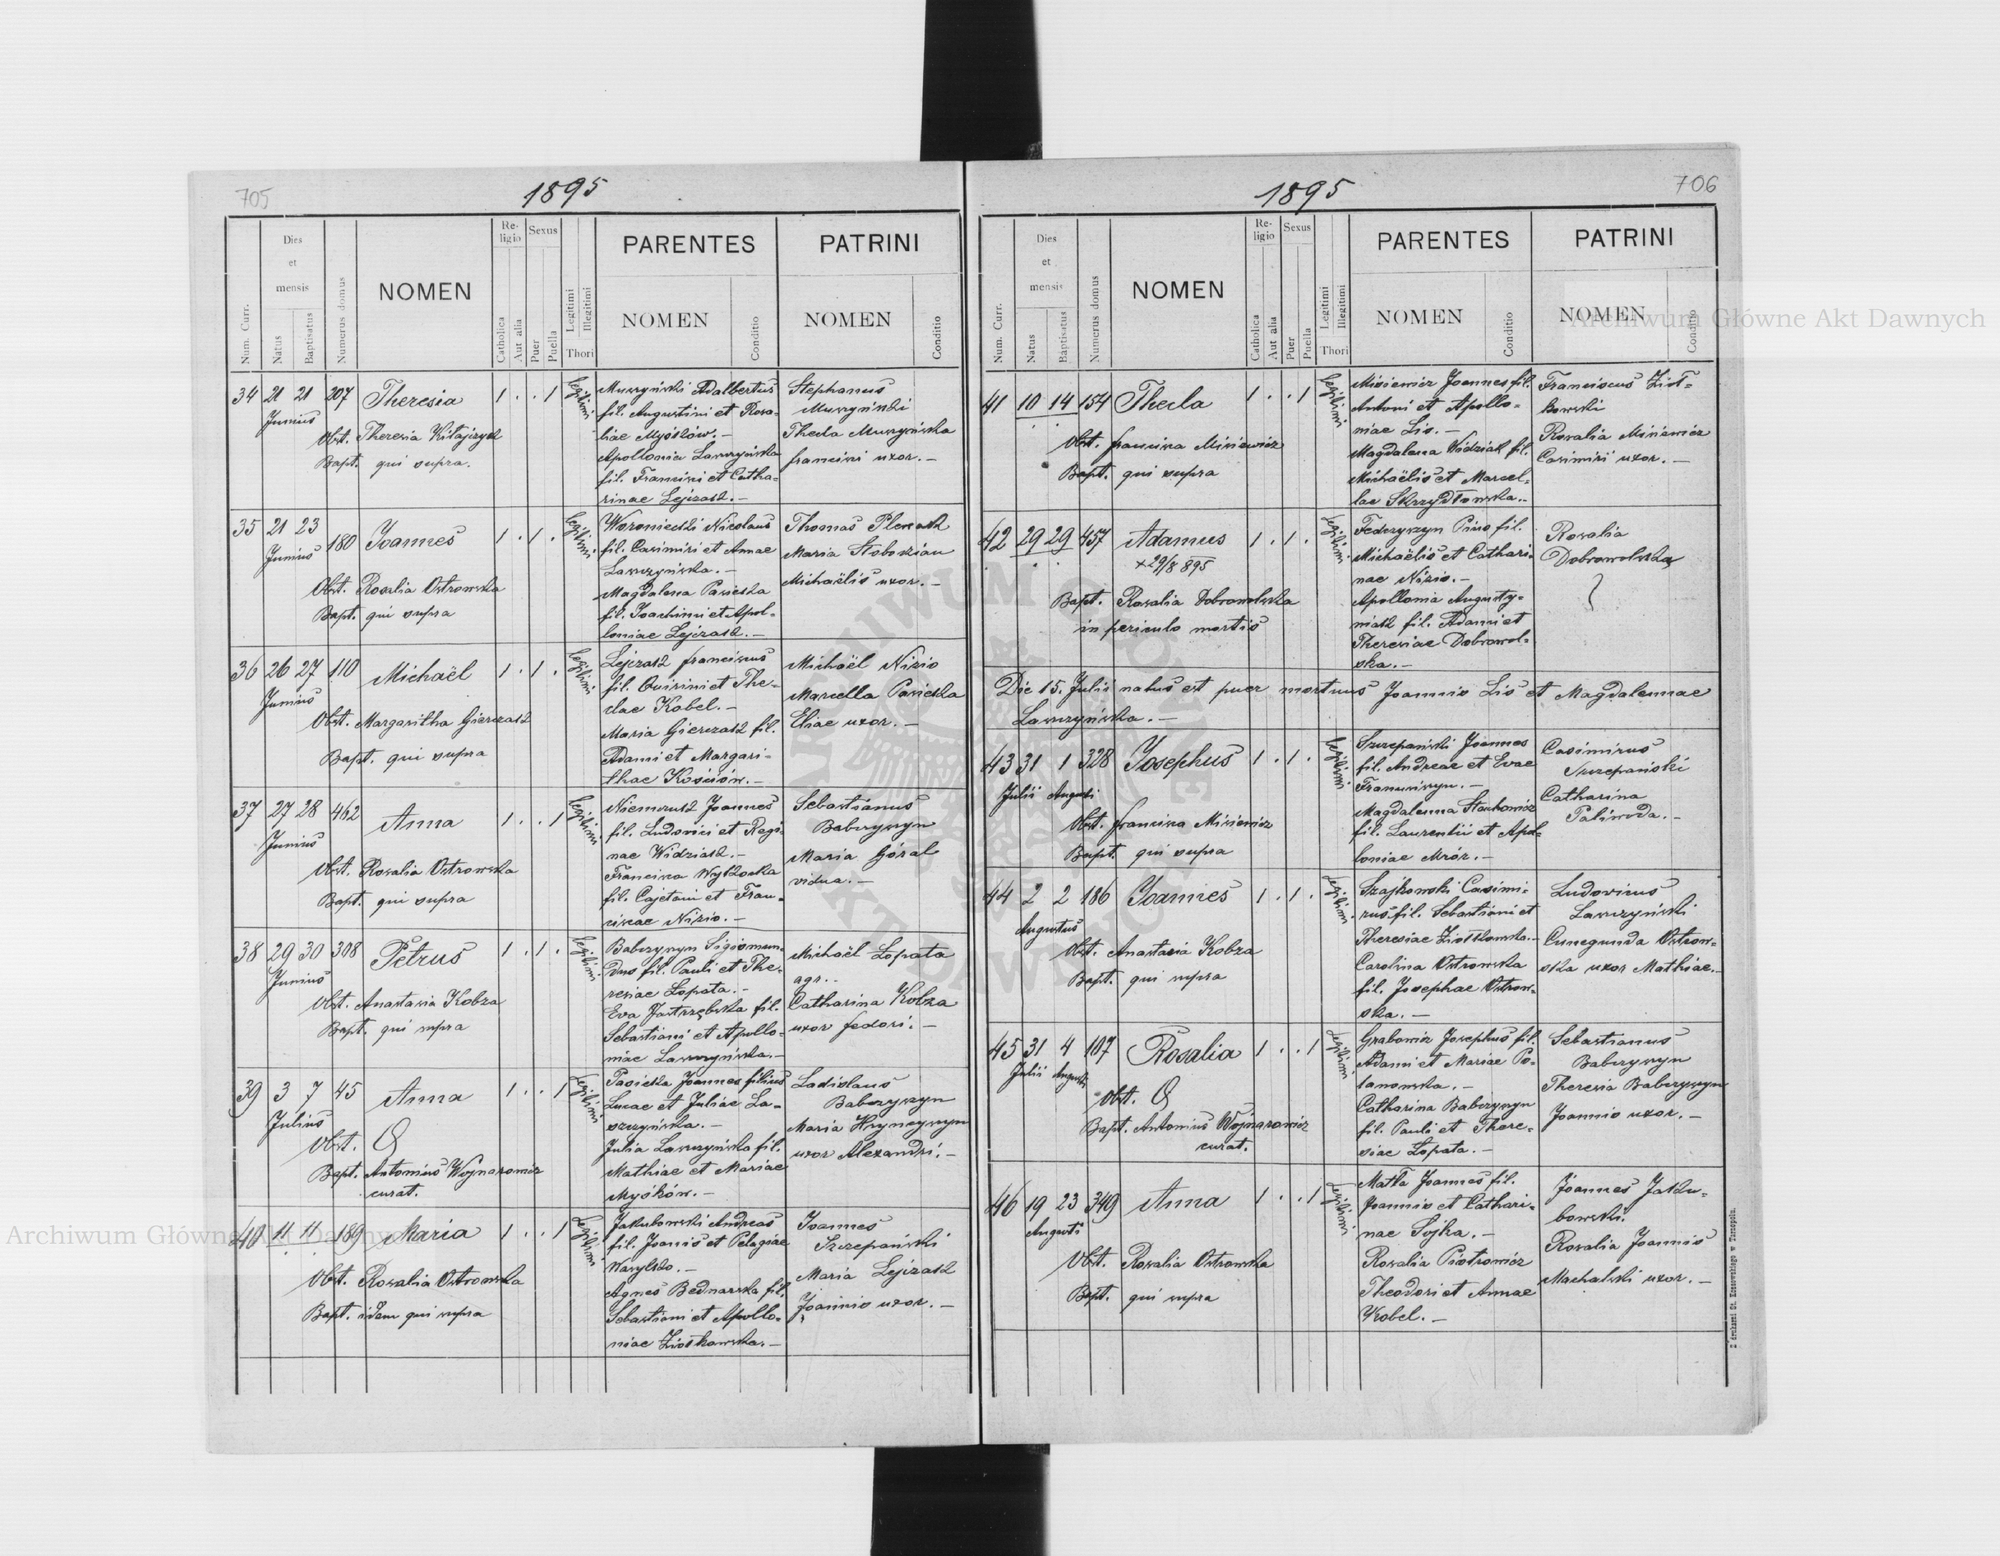 705
1895
Num. Curr.
Dies
et
mensis
Natus
Baptisatus
Numerus domus
NOMEN
Re-
ligio
Catholica
Aut alia
Sexus
Puer
Puella
Legitimi
Illegitimi
Thori
PARENTES
NOMEN
Conditio
PATRINI
NOMEN
Conditio
34 21 21 207 Theresia 1 . . 1 legitimi
Junius
Obst. Theresia
Bapt. qui supra.
Murzyński Adalbertus
fil. Augustini et Rosa-
liae Myśków. –
Apollonia Lawrzyńska
fil. Francisci et Catha-
rinae Lejzask. –
Stephanus
Murzyński
Thecla Murzyńska
Francisci uxor. –
35 21 23 180 Joannes 1 . 1 . legitimi
Junius
Obst. Rosalia Ostrowska
Bapt. qui supra
Woroniecki Nicolaus
fil. Casimiri et Annae
Lawrzyńska. –
Magdalena Pasieska
fil. Joachimi et Apol-
loniae Lejzask. –
Thomas
Maria Slobodzian
Michaëlis uxor. –
36 26 27 110 Michaël 1 . 1 . legitimi
Junius
Obst. Margaritha Gierczask
Bapt. qui supra
Lejzask Franciscus
fil. Quirini et The-
clae Kobel. –
Maria Gierczask fil.
Adami et Margari-
thae Kościów. –
Michaël Nizio
Marcella Pasieska
Eliae uxor. –
37 27 28 462 Anna 1 . . 1 legitimi
Junius
Obst. Rosalia Ostrowska
Bapt. qui supra
Niemczusk Joannes
fil. Ludovici et Regi-
nae Widziask. –
Francisca Wysłocka
fil. Cajetani et Fran-
ciscae Nizio. –
Sebastianus
Babczyszyn
Maria Góral
vidua. –
38 29 30 308 Petrus 1 . 1 . legitimi
Junius
Obst. Anastasia Kobza
Bapt. qui supra
Babczyszyn Sigismun-
dus fil. Pauli et The-
resiae Łopata. –
Eva Jastrzębska fil.
Sebastiani et Apollo-
niae Lawrzyńska. –
Michaël Łopata
agr.
Catharina Kobza
uxor Fedori. –
39 3 7 45 Anna 1 . . 1 legitimi
Julius
Obst.
Bapt. Antonius Wojnarowicz
curat.
Pasieska Joannes filius
Lucae et Juliae La-
wrzyńska. –
Julia Lawrzyńska fil.
Mathiae et Mariae
Myśków. –
Ladislaus
Babczyszyn
Maria Hryncyszyn
uxor Alexandri. –
40 11 11 189 Maria 1 . . 1 legitimi
Obst. Rosalia Ostrowska
Bapt. idem qui supra
Jakubowski Andreas
fil. Joanis et Pelagiae
Wasylko. –
Agnes Bednarska fil.
Sebastiani et Apollo-
niae Ziółkowska. –
Joannes
Szczepański
Maria Lejzask
Joannis uxor. –
706
1895
Num. Curr.
Dies
et
mensis
Natus
Baptisatus
Numerus domus
NOMEN
Re-
ligio
Catholica
Aut alia
Sexus
Puer
Puella
Legitimi
Illegitimi
Thori
PARENTES
NOMEN
Conditio
PATRINI
NOMEN
Conditio
41 10 14 154 Thecla 1 . . 1 legitimi
Obst. Francisca Misiewicz
Bapt. qui supra
Misiewicz Joannes fil.
Antoni et Apollo-
niae Lis. –
Magdalena Widziak fil.
Michaëlis et Marcel-
lae Skrzydłowska. –
Franciscus Ziół-
kowski
Rosalia Misiewicz
Casimiri uxor. –
42 29 29 457 Adamus 1 . 1 . legitimi
+ 29/8 895
Bapt. Rosalia Dobrowolska
in periculo mortis
Federyszyn Pius fil.
Michaëlis et Cathari-
nae Nizio. –
Apollonia Augusty-
niask fil. Adami et
Theresiae Dobrowol-
ska. –
Rosalia
Dobrowolska
Die 15. Julii natus est puer mortuus Joannis Lis et Magdalennae
Lawrzyńska. –
43 31 1 328 Josephus 1 . 1 . legitimi
Julii Augusti
Obst. Francisca Misiewicz
Bapt. qui supra
Szczepański Joannes
fil. Andreae et Evae
Franciszyn. –
Magdalenna Stankowicz
fil. Laurentii et Apol-
loniae Mróz. –
Casimirus
Szczepański
Catharina
Paliwoda. –
44 2 2 186 Joannes 1 . 1 . legitimi
Augustus
Obst. Anastasia Kobza
Bapt. qui supra
Szajkowski Casimi-
rus fil. Sebastiani et
Theresiae Ziółkowska. –
Carolina Ostrowska
fil. Josephae Ostrow-
ska. –
Ludovicus
Lawrzyński
Cunegunda Ostrow-
ska uxor Mathiae. –
45 31 4 107 Rosalia 1 . . 1 legitimi
Julii Augusti
Obst.
Bapt. Antonius Wojnarowicz
curat.
Grabowicz Josephus fil.
Adami et Mariae Po-
lanowska. –
Catharina Babczyszyn
fil. Pauli et There-
siae Łopata. –
Sebastianus
Babczyszyn
Theresia Babczyszyn
Joannis uxor. –
46 19 23 349 Anna 1 . . 1 legitimi
Augusti
Obst. Rosalia Ostrowska
Bapt. qui supra
Matła Joannes fil.
Joannis et Cathari-
nae Sojka. –
Rosalia Piotrowicz
Theodori et Annae
Kobel. –
Joannes Jaku-
bowski.
Rosalia Joannis
Machalski uxor. –
Z drukarni St. Kossowskiego w Tarnopolu.
Archiwum Główne Akt Dawnych
Archiwum Główne Akt Dawnych
ARCHIWUM GŁÓWNE AKT DAWNYCH